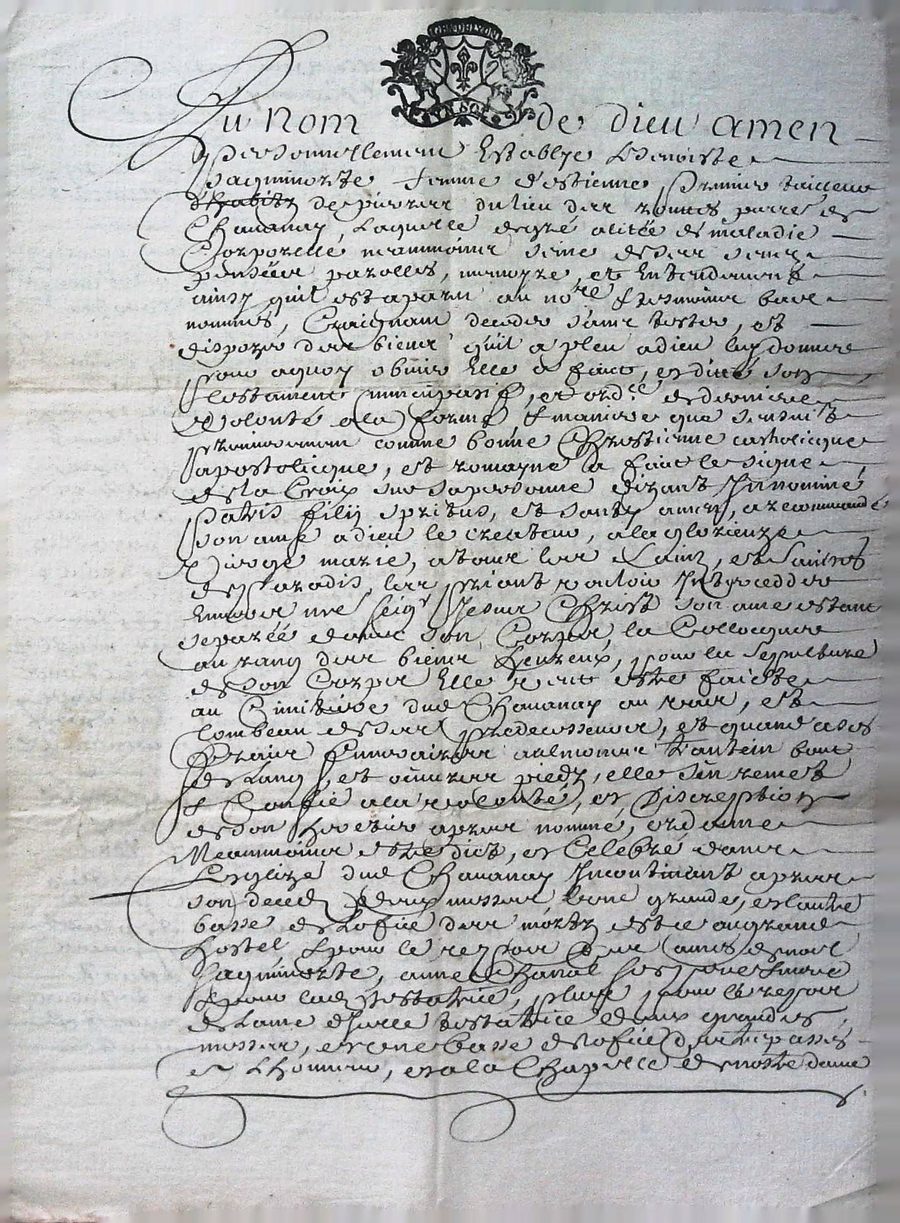 GEN DE LYON
VN SOL
Au nom de dieu amen
personnellement establye benoiste
Jaquinorte femme d'estienne premier tailleur
d'habitz de pierres du lieu des parr[e] de
Chavanay, Laquelle alitée de maladie
Corporelle neanmoings seine de ses sens
pensées parolles, memoyre, et Entendement
ainsy quil est aparu au no[re] & tesmoins bas
nommés, Craignant deceder sans tester, et
dispozer des biens quil a pleu a dieu luy donner
pour a quoy obvier Elle a faict, et dicté son
testament nuncupatif, et ord[e] de derniere
Volonté a la forme & maniere que sensuit
premierement comme bonne Chrestienne catholicque
apostolicque, et romayne a faict le signe
de la Croix sur sa personne dizant In nomine
patris filij spritus, et santy amen, a recommandé
son ame a dieu le createur, a la glorieuze
Vierge marie, a tous les Saintz, et Saintes
de Paradis, les priant vouloir Intercedder
Envers nre seig[r] Jesus Christ son ame estant
separée davec son Corps, la Collocquer
au rang des biens heureux, pour la sepulture
de son Corps Elle veut estre faicte
au Cimitiere dud Chavanay au vas, et
tombeau de ses predecesseurs, et quand a ses
frais funeraires aulmones & antein bout
de lang, et piedz, elle s'en remet
& Confie a la volonté, et Discreption
de son heretier apres nommé, ordonne
Neanmoings estre dict, et Celebré dans
L'esglize dud Chavanay Incontinant apres
son decedz deux messes lune grande, et lautre
basse de Lofice des mortz au grand
hostel & pour le repos des ames de noel
Jaquinorte, anne Chanal ses pere & mere
& pour lad testatrice, plus pour le repos
de lame dicelle testatrice deux grandes
messes, et une basse de lofice des trepassés
a Lhonneur, et a la Chapelle de nostre dame